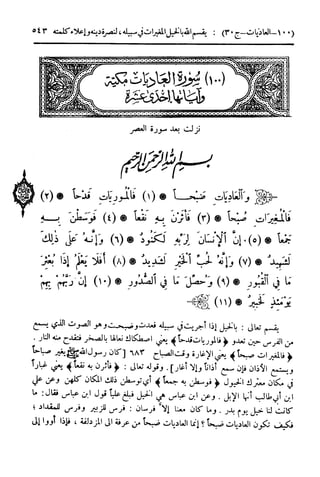 (١٠٠-العاديات-ج٣٠) : يقسم الله بالخيل المغيرات في سبيله، لنصرة دينه وإعلاء كلمته ٥٤٣
(١٠٠) سورة العاديات مكية
وآياتها إحدى عشرة
نزلت بعد سورة العصر
بسم الله الرحمن الرحيم
وَالْعَادِيَاتِ ضَبْحاً * (١) فَالْمُورِيَاتِ قَدْحاً * (٢)
فَالْمُغِيرَاتِ صُبْحاً * (٣) فَأَثَرْنَ بِهِ نَقْعاً * (٤) فَوَسَطْنَ بِهِ
جَمْعاً * (٥) إِنَّ الْإِنْسَانَ لِرَبِّهِ لَكَنُودٌ * (٦) وَإِنَّهُ عَلَى ذَلِكَ
لَشَهِيدٌ * (٧) وَإِنَّهُ لِحُبِّ الْخَيْرِ لَشَدِيدٌ * (٨) أَفَلَا يَعْلَمُ إِذَا بُعْثِرَ
مَا فِي الْقُبُورِ * (٩) وَحُصِّلَ مَا فِي الصُّدُورِ * (١٠) إِنَّ رَبَّهُمْ بِهِمْ
يَوْمَئِذٍ لَخَبِيرٌ * (١١)
يقسم تعالى : بالخيل إذا أجريت في سبيله فعدت وضبحت وهو الصوت الذي يسمع
من الفرس حين تعدو ﴿فالموريات قدحاً﴾ يعني اصطكاك نعالها بالصخر فتقدح منه النار
﴿فالمغيرات صبحاً﴾ يعني الإغارة وقت الصباح ٦٨٣ [كان رسول الله ﷺ يغير صباحاً
ويستمع الأذان فإن سمع أذاناً وإلا أغار]. وقوله تعالى : ﴿فأثرن به نقعاً﴾ يعني غباراً
في مكان معترك الخيول ﴿فوسطن به جمعاً﴾ أي توسطن ذلك المكان كلهن وعن علي
ابن أبي طالب أنها الإبل. وعن ابن عباس هي الخيل فبلغ علياً قول ابن عباس فقال: ما
كانت لنا خيل يوم بدر. وما كان معنا إلا فرسان : فرس للزبير وفرس للمقداد ؛
فكيف تكون العاديات ضبحاً؟ إنما العاديات ضبحاً من عرفة الى المزدلفة، فإذا أووا إلى